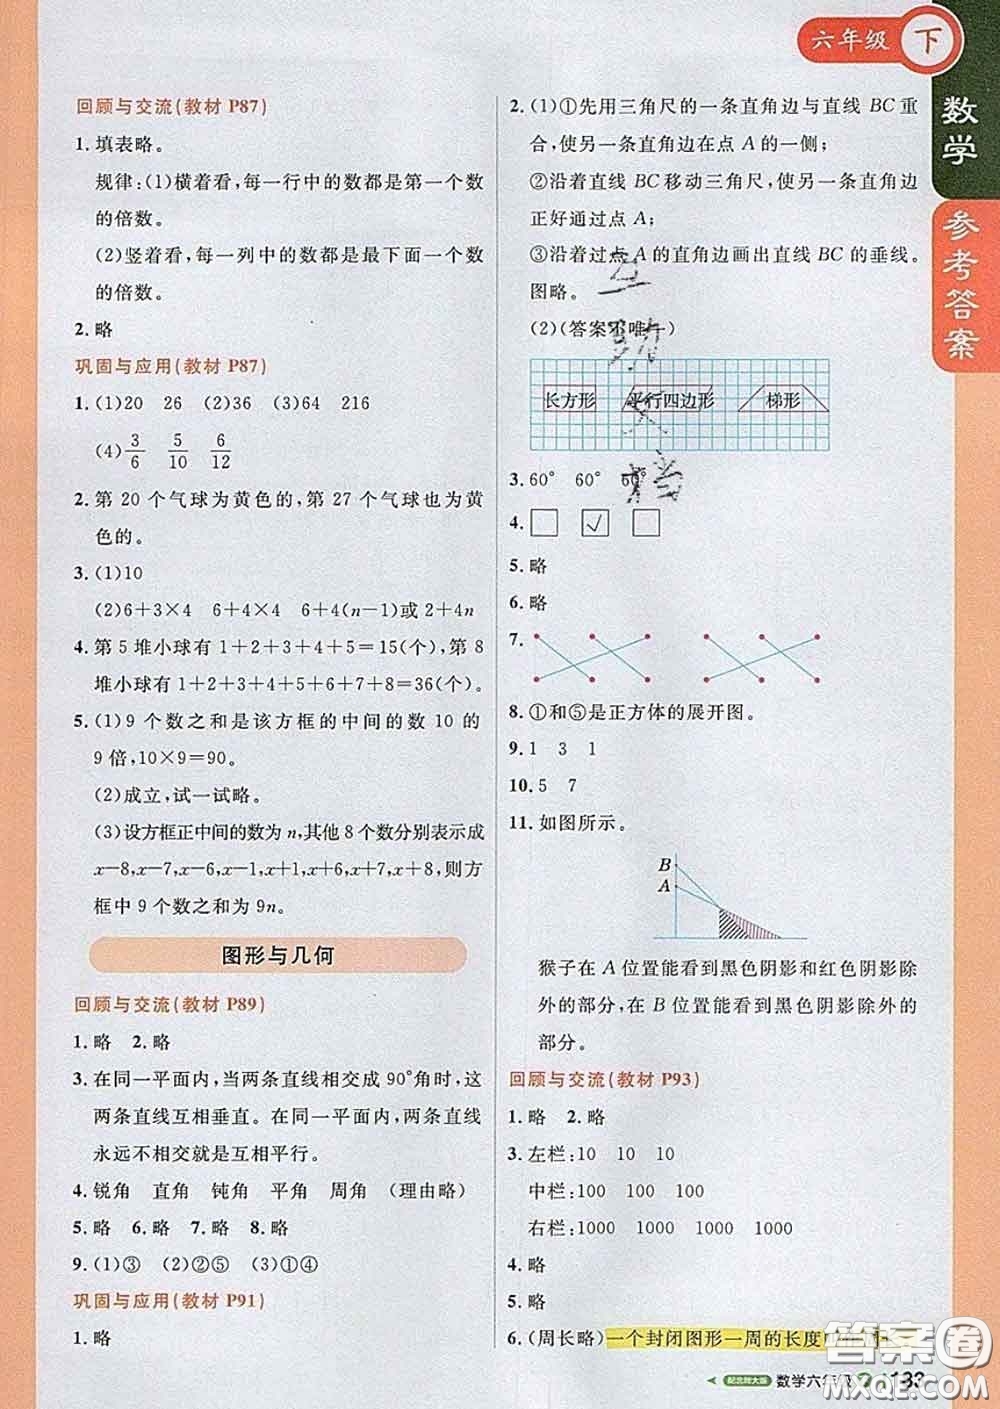 六年级 下
数学
参考答案
回顾与交流(教材 P87)
1. 填表略。
规律:(1)横着看,每一行中的数都是第一个数
的倍数。
(2)竖着看,每一列中的数都是最下面一个数
的倍数。
2. 略
巩固与应用(教材 P87)
1. (1)20 26 (2)36 (3)64 216
(4)3/6 5/10 6/12
2. 第 20 个气球为黄色的,第 27 个气球也为黄
色的。
3. (1)10
(2)6+3×4 6+4×4 6+4(n-1)或 2+4n
4. 第 5 堆小球有 1+2+3+4+5=15(个),第 8
堆小球有 1+2+3+4+5+6+7+8=36(个)。
5. (1)9 个数之和是该方框的中间的数 10 的
9 倍,10×9=90。
(2)成立,试一试略。
(3)设方框正中间的数为 n,其他 8 个数分别表示成
x-8,x-7,x-6,x-1,x+1,x+6,x+7,x+8,则方
框中 9 个数之和为 9n。
图形与几何
回顾与交流(教材 P89)
1. 略 2. 略
3. 在同一平面内,当两条直线相交成 90°角时,这
两条直线互相垂直。在同一平面内,两条直线
永远不相交就是互相平行。
4. 锐角 直角 钝角 平角 周角 (理由略)
5. 略 6. 略 7. 略 8. 略
9. (1)③ (2)②⑤ (3)①④
巩固与应用(教材 P91)
1. 略
2. (1)①先用三角尺的一条直角边与直线 BC 重
合,使另一条直角边在点 A 的一侧;
②沿着直线 BC 移动三角尺,使另一条直角边
正好通过点 A;
③沿着过点 A 的直角边画出直线 BC 的垂线。
图略。
(2)(答案不唯一)
长方形 平行四边形 梯形
3. 60° 60° 60°
4. □ ☑ □
5. 略
6. 略
7.
8. ①和⑤是正方体的展开图。
9. 1 3 1
10. 5 7
11. 如图所示。
B
A
猴子在 A 位置能看到黑色阴影和红色阴影除
外的部分,在 B 位置能看到黑色阴影除外的
部分。
回顾与交流(教材 P93)
1. 略 2. 略
3. 左栏:10 10 10
中栏:100 100 100
右栏:1000 1000 1000 1000
4. 略
5. 略
6. (周长略)一个封闭图形一周的长度
配北师大版 数学六年级 下 183
答案圈
MXQE.COM